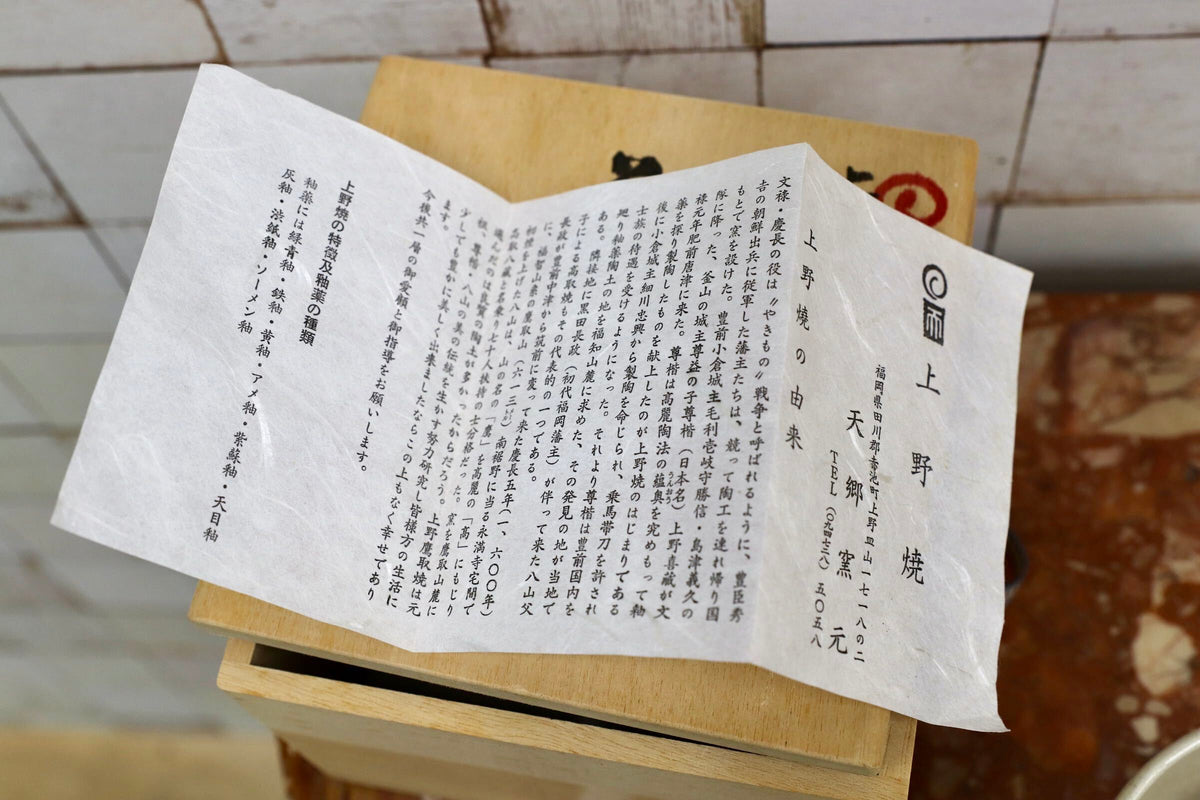 上野焼
福岡県田川郡赤池町上野皿山一七一八の二
天郷窯元
TEL(〇九四七三八)五〇五八
上野焼の由来
文禄・慶長の役は〝やきもの〟戦争と呼ばれるように、豊臣秀
吉の朝鮮出兵に従軍した藩主たちは、競って陶工を連れ帰り国
もとで窯を設けた。豊前小倉城主毛利壱岐守勝信・島津義久の
隊に降った、釜山の城主尊益の子尊楷(日本名)上野喜蔵が文
禄元年肥前唐津に来た。尊楷は高麗陶法の蘊奥を究めもって釉
薬を採り製陶したものを献上したのが上野焼のはじまりである
後に小倉城主細川忠興から製陶を命じられ、乗馬帯刀を許され
士族の待遇を受けるようになった。それより尊楷は豊前国内を
廻り釉薬陶土の地を福知山麓に求めた、その発見の地が当地で
ある。隣接地に黒田長政(初代福岡藩主)が伴って来た八山父
子による高取焼もその代表的の一つである。
長政が豊前中津から筑前に変って来た慶長五年(一、六〇〇年)
に、福智山系の鷹取山(六一三㍍)南裾野に当る永満寺宅間で
初煙を上げた八山は、山の名の「鷹」を高麗の「高」にもじり
高取八蔵と名乗り七十人扶持の士分格だった。窯を鷹取山麓に
選んだのは良質の陶土が多かったからだろう。上野鷹取焼は元
祖、尊楷・八山の美の伝統を生かす努力研究し皆様方の生活に
少しでも豊かに美しく出来ましたならこの上もなく幸せであり
ます。
今後共一層の御愛顧と御指導をお願いします。
上野焼の特徴及釉薬の種類
釉薬には緑青釉・鉄釉・黄釉・アメ釉・紫蘇釉・天目釉
灰釉・渋紙釉・ソーメン釉